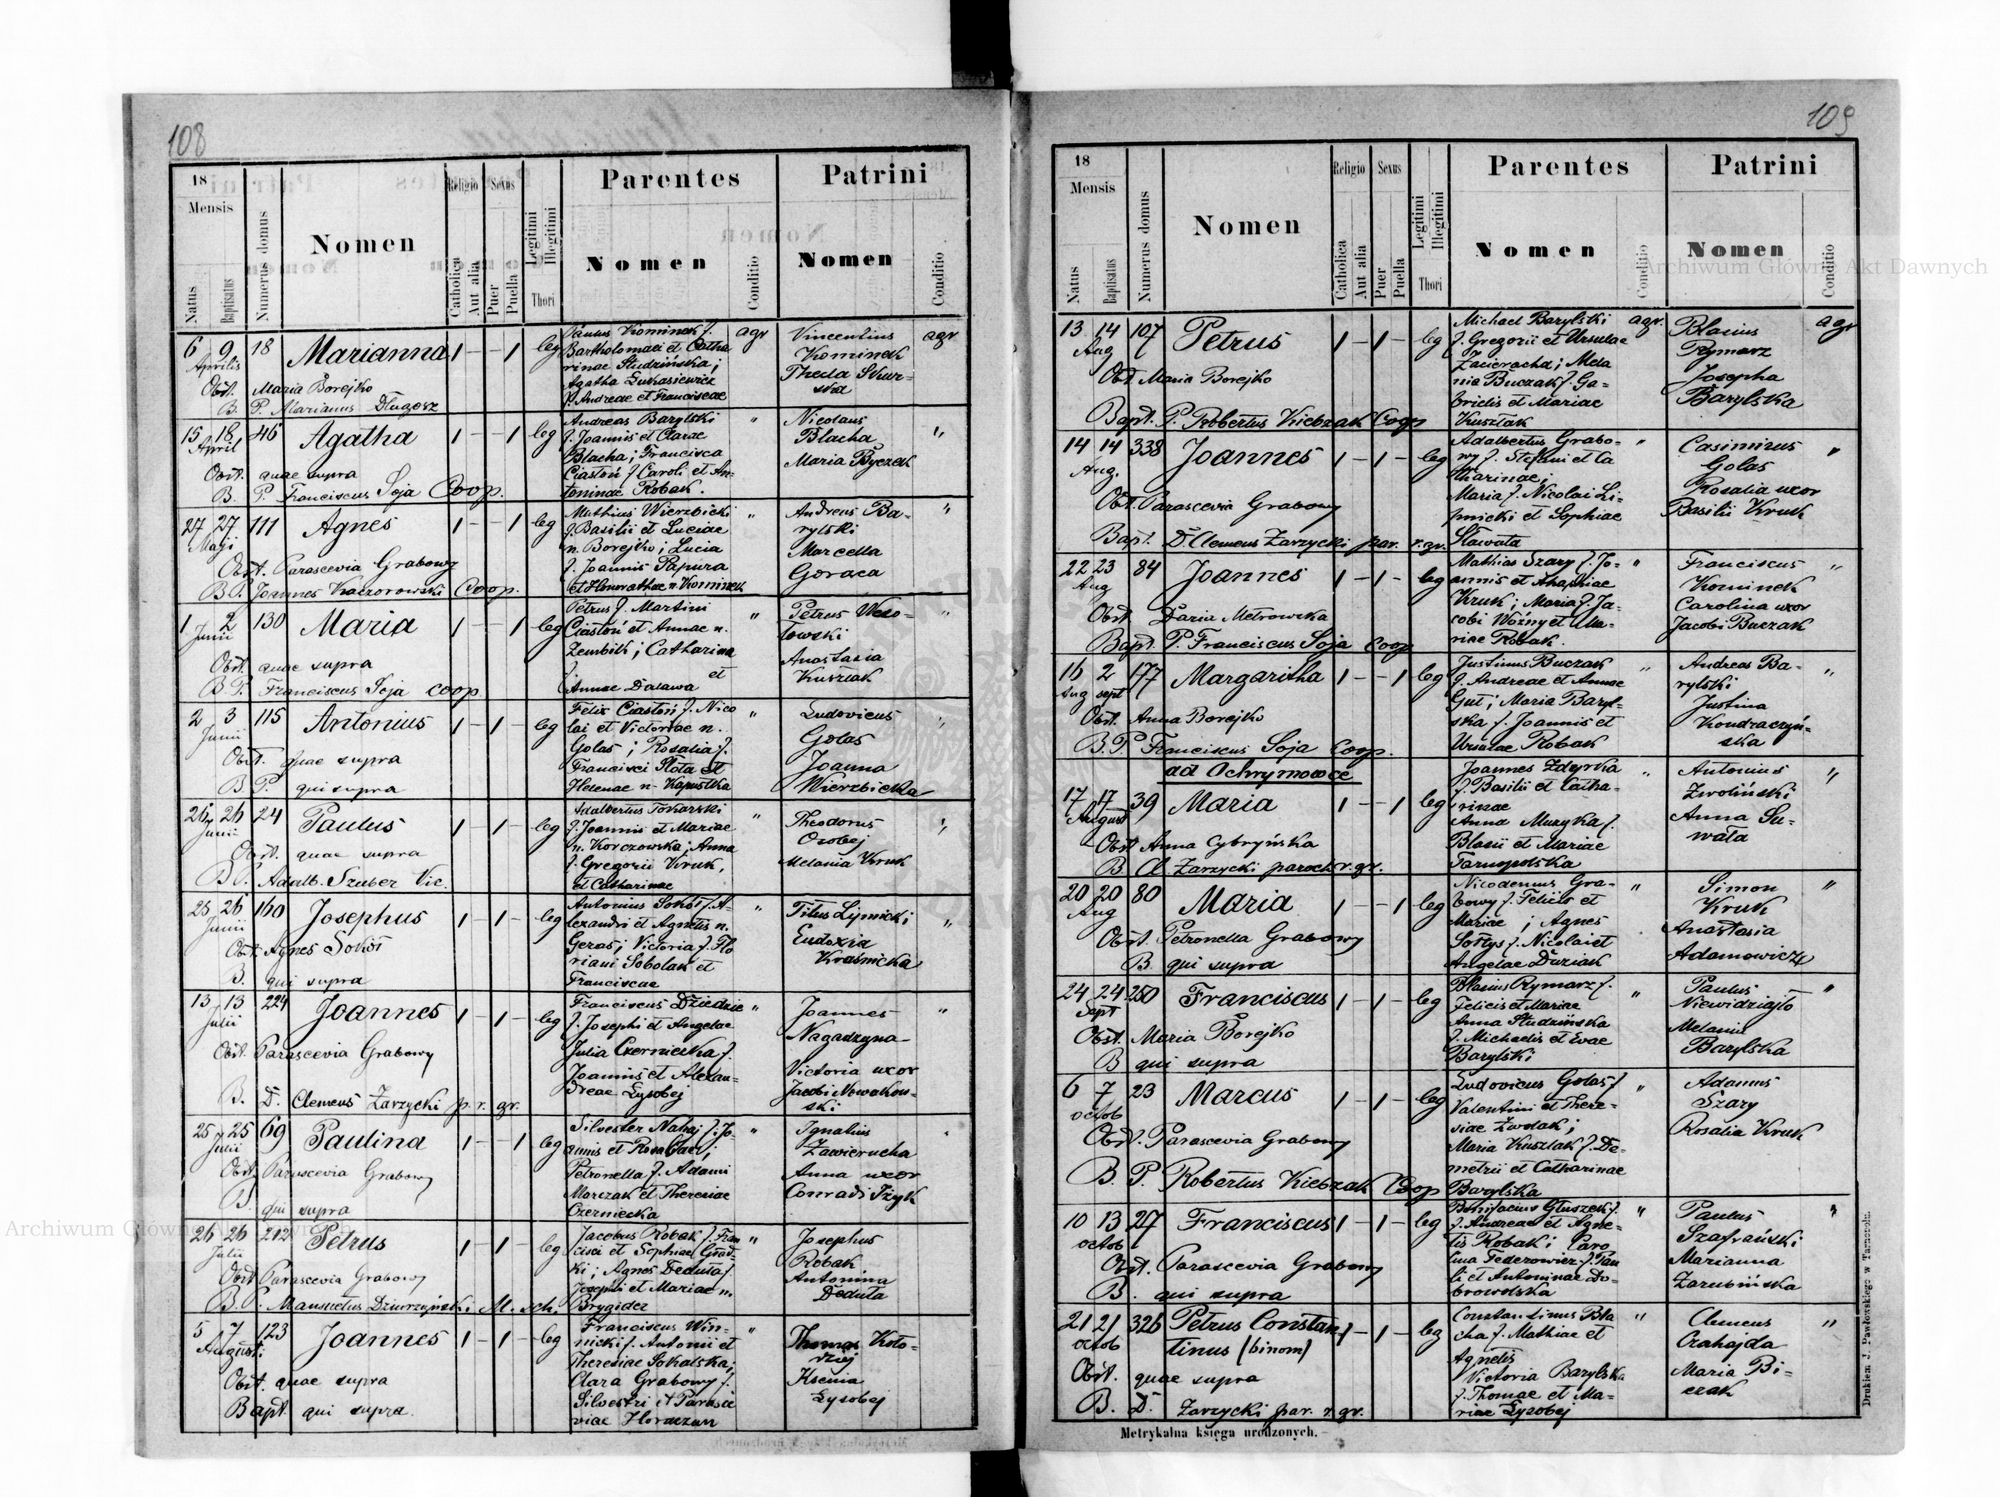 108
18
Mensis
Natus
Baptisatus
Numerus domus
Nomen
Religio
Catholica
Aut alia
Sexus
Puer
Puella
Legitimi
Illegitimi
Thori
Parentes
Nomen
Conditio
Patrini
Nomen
Conditio
6 9 18 Marianna 1 – – 1 leg
Aprilis
Obst. Maria Borejko
B. P. Marianus Długosz
Paulus Kominek f.
Bartholomaei et Catha
rinae Studzińska;
Agatha Łukasiewicz
f. Andreae et Franciscae
agr
Vincentius
Kominek
Thecla Skur-
ska
agr
15 18 46 Agatha 1 – – 1 leg
April
Obst. quae supra
B. P. Franciscus Soja Coop.
Andreas Barylski
f. Joannis et Clarae
Blacha; Francisca
Ciastoń f. Caroli et An-
toninae Robak.
"
Nicolaus
Blacha
Maria Byczek
"
27 27 111 Agnes 1 – – 1 leg
Maji
Obst. Parascevia Grabowy
B. P. Joannes Kaczorowski Coop.
Mathias Wierzbicki
f. Basilii et Luciae
n. Borejko; Lucia
f. Joannis Sapura
et Honorathae n Kominek
"
Andreas Ba-
rylski
Marcella
Goraca
"
1 2 130 Maria 1 – – 1 leg
Junii
Obst. quae supra
B. P. Franciscus Soja coop.
Petrus f. Martini
Ciastoń et Annae n.
Zembik; Catharina
et
Annae Dalawa
"
Petrus Weso-
łowski
Anastasia
Kuśzlak
"
2 3 115 Antonius 1 – 1 – leg
Junii
Obst. quae supra
B. P. qui supra
Felix Ciastoń f. Nico
lai et Victoriae n.
Golas; Rosalia f.
Francisci Słota et
Helenae n. Kapustka
"
Ludovicus
Golas
Joanna
Wierzbicka
"
26 26 24 Paulus 1 – 1 – leg
Junii
Obst. quae supra
B. P. Adalb. Szuber Vic.
Adalbertus Tokarski
f. Joannis et Mariae
n. Korczowska; Anna
f. Gregorii Kruk,
et Catharinae
"
Theodorus
Osobej
Melania Kruk
"
25 26 160 Josephus 1 – 1 – leg
Junii
Obst. Agnes Sokół
B. qui supra
Antonius Sokół f. A-
lexandri et Agnetis n.
Geras; Victoria f. Flo
riani Sobolak et
Franciscae
"
Titus Lipnicki
Eudoxia
Kraśnicka
"
13 13 224 Joannes 1 – 1 – leg
Julii
Obst. Parascevia Grabowy
B. D. Clemens Zarzycki p. r. gr.
Franciscus Dziedzic
f. Josephi et Angelae
Julia Czerniecka f.
Joannis et Alexan-
dreae Łysobej
"
Joannes
Nagadzyna
Victoria uxor
Jacobi Nowakow-
ski
"
25 25 69 Paulina 1 – – 1 leg
Julii
Obst. Parascevia Grabowy
B. qui supra
Silvester Nahaj f. Jo-
annis et Rosaliae;
Petronella f. Adami
Morczak et Theresiae
Czerniecka
"
Ignatius
Zawierucha
Anna uxor
Conradi Iżyk
26 26 212 Petrus 1 – 1 – leg
Julii
Obst Parascevia Grabowy
B. P. Mansuetus Dziurzyński M. sch.
Jacobus Robak f. Fran
cisci et Sophiae
ki; Agnes Deduła f.
Josephi et Mariae n.
Brygider
"
Josephus
Robak
Antonina
Deduła
5 7 123 Joannes 1 – 1 – leg
August.
Obst. quae supra
Bapt. qui supra.
Franciscus Win-
nicki f. Antonii et
Theresiae Sokalska;
Clara Grabowy f.
Silvestri et Parasce
viae Horaczan
"
Thomas Koło-
dziej
Ksenia
Łysobej
109
18
Mensis
Natus
Baptisatus
Numerus domus
Nomen
Religio
Catholica
Aut alia
Sexus
Puer
Puella
Legitimi
Illegitimi
Thori
Parentes
Nomen
Conditio
Patrini
Nomen
Conditio
13 14 107 Petrus 1 – 1 – leg
Aug
Obst Maria Borejko
Bapt. P. Robertus Kiebzak Coop
Michael Barylski
f. Gregorii et Ursulae
Zacieracha; Mela
nia Buczak f. Ga-
brielis et Mariae
Kuszlak
agr.
Blasius
Rymarz
Josepha
Barylska
agr
14 14 338 Joannes 1 – 1 – leg
Aug.
Obst. Parascevia Grabowy
Bapt. D. Clemens Zarzycki par. r. gr.
Adalbertus Grabo-
wy f. Stefani et Ca
tharinae;
Maria f. Nicolai Li-
pnicki et Sophiae
Sławata
"
Casimirus
Golas
Rosalia uxor
Basilii Kruk
"
22 23 84 Joannes 1 – 1 – leg
Aug
Obst. Daria Metrowska
Bapt. P. Franciscus Soja coop
Mathias Szary f. Jo-
annis et Ahaphiae
Kruk; Maria f. Ja-
cobi Woźny et Ma-
riae Robak.
"
Franciscus
Kominek
Carolina uxor
Jacobi Buczak
"
16 2 177 Margaritha 1 – – 1 leg
Aug sept
Obst. Anna Borejko
B. P. Franciscus Soja coop.
Justinus Buczak
f. Andreae et Annae
Gut; Maria Baryl-
ska f. Joannis et
Ursulae Robak
"
Andreas Ba-
rylski
Justina
Kondraczyń-
ska
"
ad Ochrymowce
17 17 39 Maria 1 – – 1 leg
August
Obst Anna Cybryńska
B. Cl. Zarzycki paroch r. gr.
Joannes Zdeyrka
f. Basilii et Catha-
rinae
Anna Muzyka f.
Blasii et Mariae
Tarnopolska
"
Antonius
Zwoliński
Anna Su-
wała
"
20 20 80 Maria 1 – – 1 leg
Aug
Obst. Petronella Grabowy
B. qui supra
Nicodemus Gra-
bowy f. Felicis et
Mariae; Agnes
Sołtys f. Nicolai et
Angelae Duziak
"
Simon
Kruk
Anastasia
Adamowicz
"
24 24 250 Franciscus 1 – 1 – leg
Sept
Obst. Maria Borejko
B qui supra
Blasius Rymarz f.
Felicis et Mariae
Anna Studzińska
f. Michaelis et Evae
Barylski
"
Paulus
Niewidziajło
Melania
Barylska
"
6 7 23 Marcus 1 – 1 – leg
octob
Obst. Parascevia Grabowy
B. P. Robertus Kiebzak Coop
Ludovicus Golas f.
Valentini et There-
siae Zwolak;
Maria Kuszlak f. De-
metrii et Catharinae
Barylska
"
Adamus
Szary
Rosalia Kruk
10 13 217 Franciscus 1 – 1 – leg
octob
Obst. Parascevia Grabowy
B. qui supra
Bonifacius Głuszek f.
f. Andreae et Agne-
tis Robak; Caro
lina Federowicz f. Pau
li et Antoninae Do-
browolska
"
Paulus
Szafrański
Marianna
Zarubińska
"
21 21 326 Petrus Constan 1 – 1 – leg
octob tinus (binom)
Obst. quae supra
B. D. Zarzycki par. r. gr.
Constantinus Bla
cha f. Mathiae et
Agnetis
Victoria Barylska
f. Thomae et Ma-
riae Łysobej
"
Clemens
Czahajda
Maria Bi-
czak
"
Metrykalna księga urodzonych.
Drukiem J. Pawłowskiego w Tarnopolu.
Archiwum Główne Akt Dawnych
Archiwum Główne Akt Dawnych